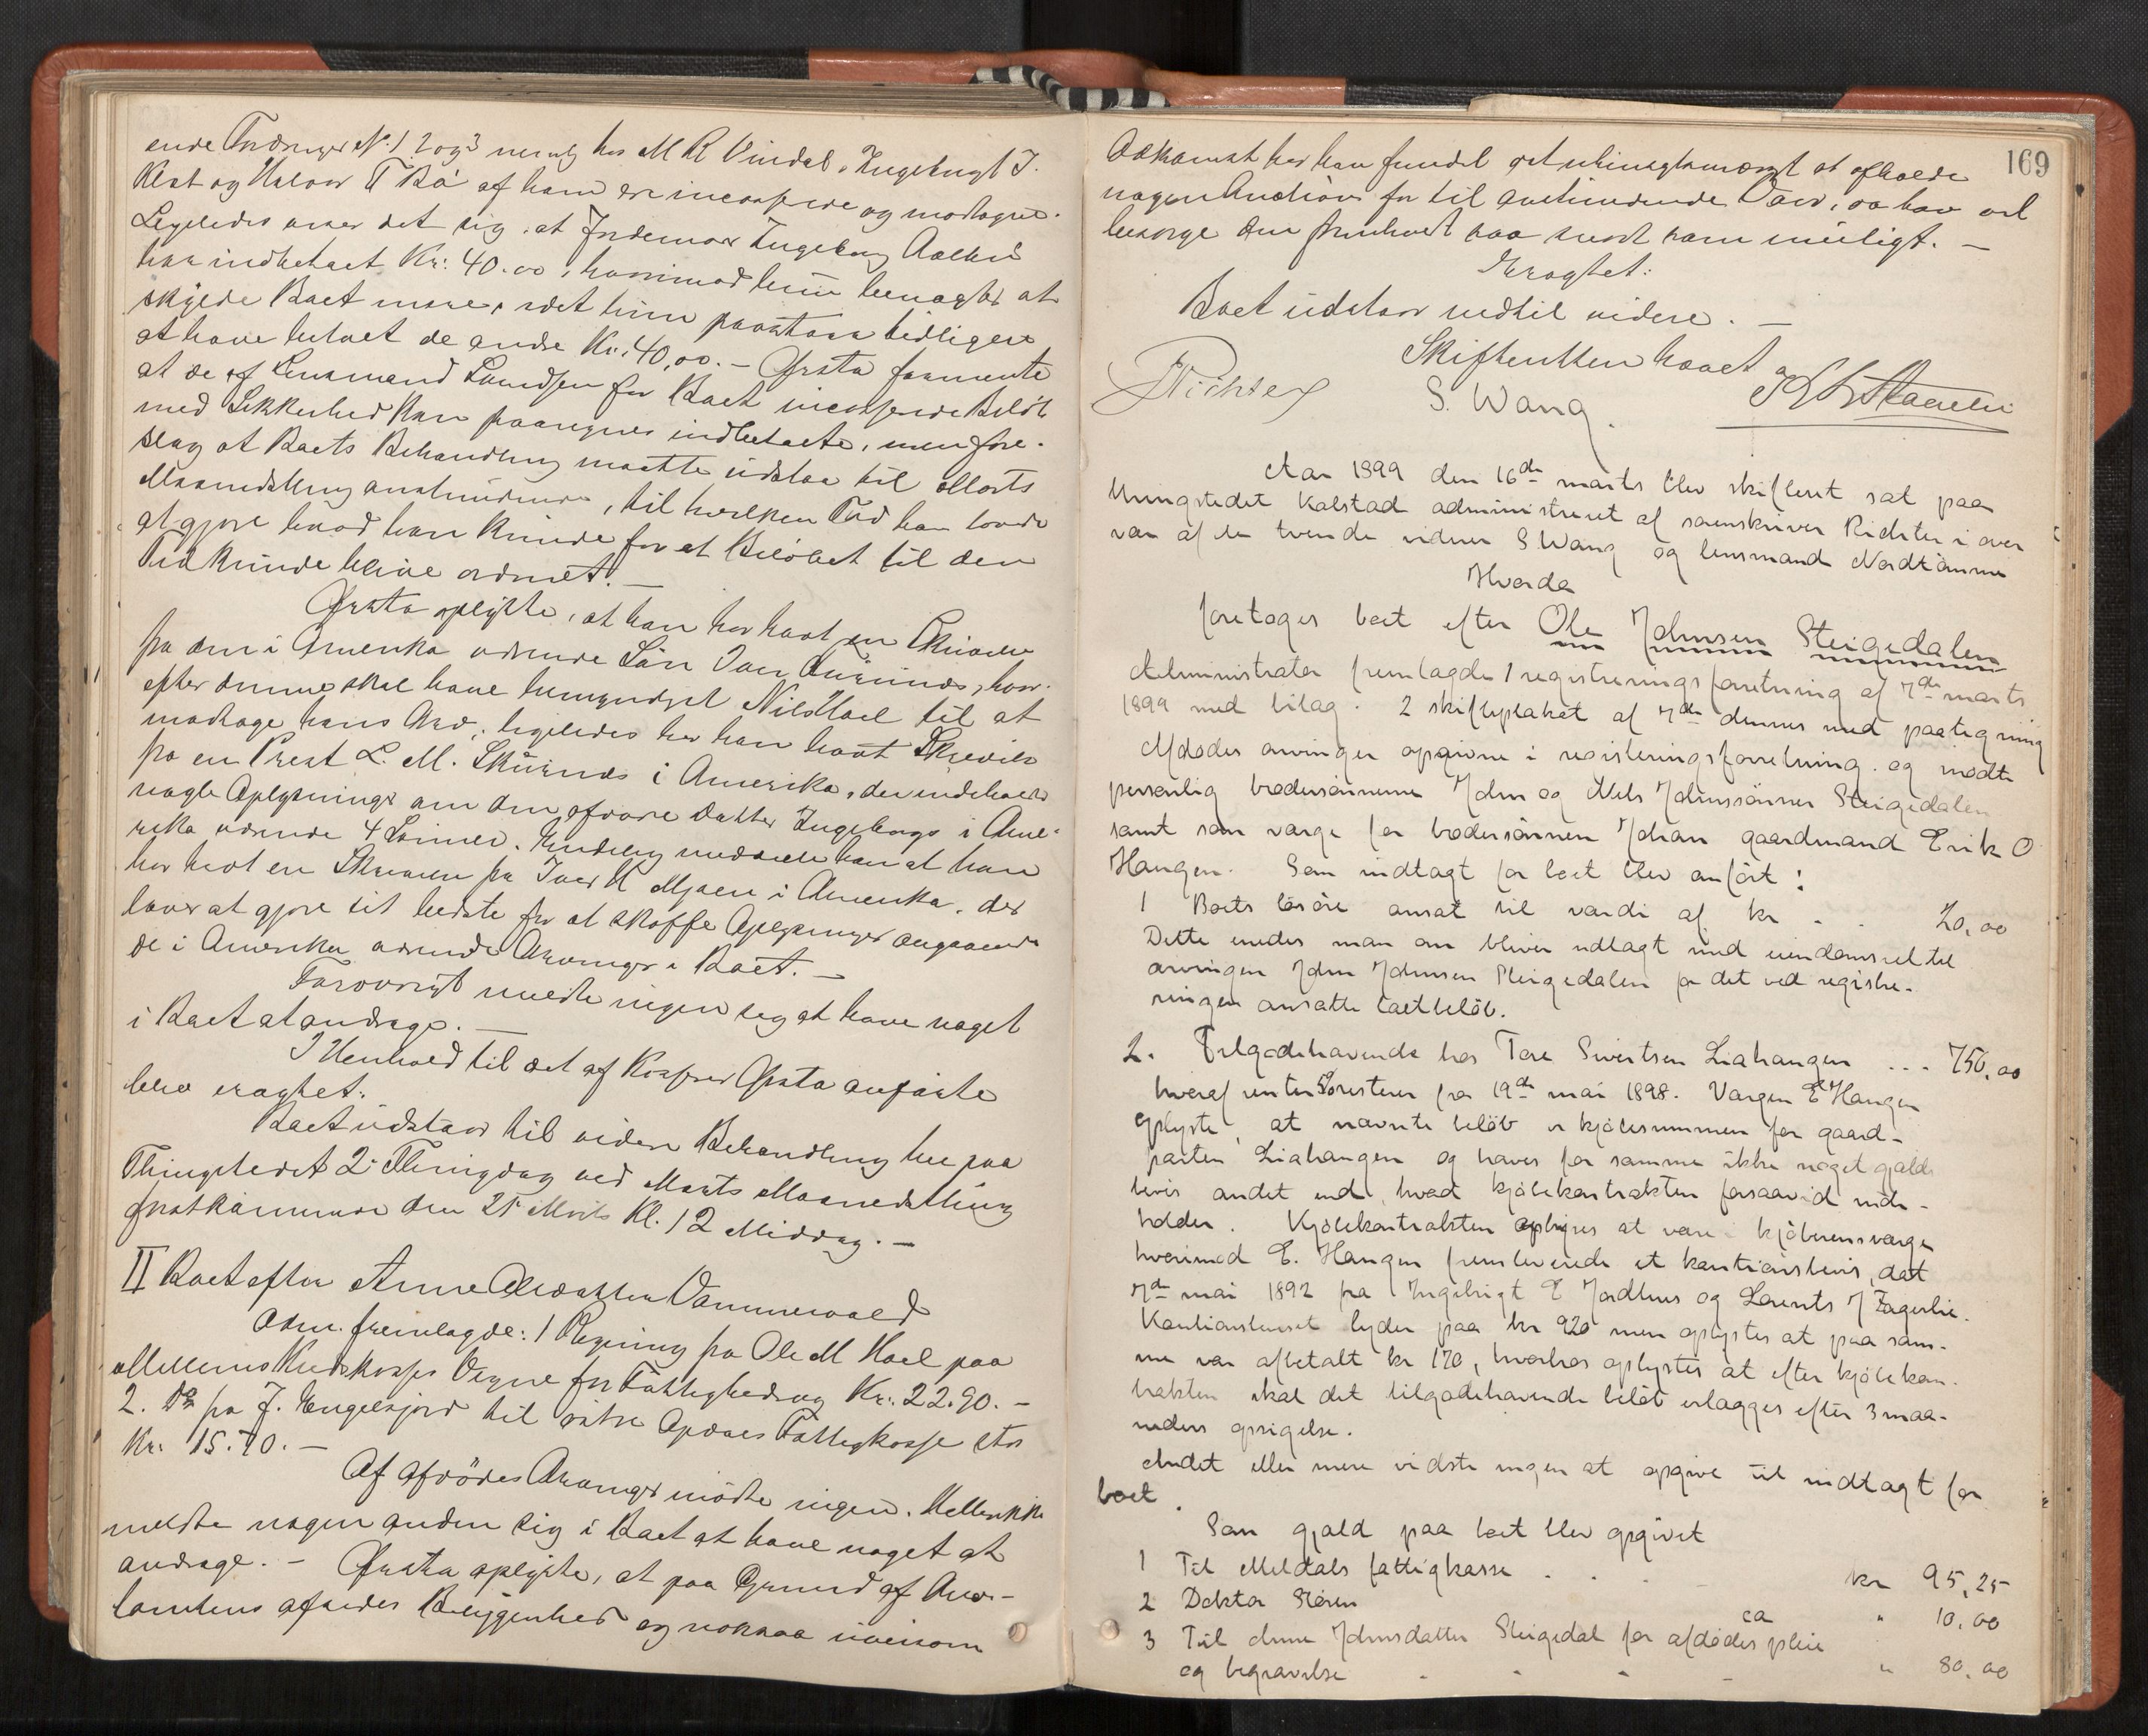 ende Fordringer No. 1 2 og 3 nemlig hos M R Vindal, Ingebrigt J.
og Halvor T Bø af ham ere incasserede og modtagne.
Ligeledes viser det sig, at Jordemor Ingeborg Aalbu
har indbetalt Kr: 40.00, hvorimod hun benægter at
skylde Boet mere, idet hun paastaar tidligere
at have betalt de andre Kr: 40,00. – Ørsta formente
at de af Lensmand for Boet incasserede Beløb
med Sikkerhed kan paaregnes indbetalte, men fore-
slog at Boets Behandling maatte udstaa til Marts
Maanedsthing anstundende, til hvilken Tid han lovede
at gjøre hvad han kunde for at Beløbet til den
Tid kunde blive ordnet. –
Ørsta oplyste, at han har havt en Skrivelse
fra den i Amerika værende Søn Iver, hvor-
efter denne skal have bemyndiget Nils Hoel til at
modtage hans Arv, ligeledes har han havt Skrivelse
fra en Prest L. M. Skurnes i Amerika, der indeholder
nogle Oplysninger om den afdøde Datter Ingeborgs i Ame-
rika værende 4 Sønner. Endelig meddelte han at han
har havt en Skrivelse fra Iver K Mjoen i Amerika, der
lover at gjøre sit bedste for at skaffe Oplysninger angaaende
de i Amerika værende Arvinger i Boet. –
Forøvrigt meldte ingen sig at have noget
i Boet at andrage. –
I Henhold til det af Ørsta anførte
blev eragtet:
Boet udstaar til videre Behandling her paa
Thingstedet 2. Thingdag ved Marts Maanedsthing
førstkommende den 25 Marts Kl. 12 Middag. –
II Boet efter Anne Olsdatter Vammervold
Adm. fremlagde: 1 Regning fra Ole M Hoel paa
Meldals Vegne for Fattighedsog Kr: 22.90. –
2. Do fra J. Engelsjord til østre Opdals Fattigkasse stor
Kr: 15.70. –
Af Afdødes Arvinger mødte ingen. Heller ikke
meldte nogen anden sig i Boet at have noget at
andrage. – Ørsta oplyste, at paa Grund af Avs-
lamtens afsides Beliggenhed og noksaa
169
Adkomst har han fundet det at afholde
nogen Auction før til anstundende Vaar, da han vil
besørge den fremhævet saa snart som muligt. –
Eragtet:
Boet udstaar indtil videre. –
Skifteretten hævet
Richter S. Wang
Aar 1899 den 16de marts blev skifteret sat paa
thingstedet Kalstad administreret af sorenskriver Richter i over
vær af de tvende vidner S Wang og lensmand Nordtømme
Hvorda
foretoges boet efter Ole Johnsen Steigedalen
Administrator fremlagde 1 registreringsforretning af 7de marts
1899 med bilag. 2 skifteplakat af 7de dennes med paategning
Afdødes arvinger opgivne i registeringsforretning. og mødte
personlig brodersønnerne John og Nils Johnssønner Steigedalen
samt som værge for brodersønnen Johan gaardmand Erik O
Haugen. Som indtægt for boet blev anført:
1 Boets løsøre ansat til værdi af kr . . 20,00
Dette enedes man om bliver udlagt med eiendomsret til
arvingen John Johnsen Steigedalen for det ved registre-
ringen ansatte taxtbeløb.
2. Tilgodehavende hos Tore Sivertsen Liahaugen ... 750,00
hvoraf renter resterer fra 19de mai 1898. Værgen E Haugen
oplyste, at nævnte beløb er kjøbesummen for gaard-
parten Liahaugen og haves for samme ikke noget gjelds
bevis andet end, hvad kjøbekontrakten forsaavid inde-
holder. Kjøbekontrakten oplyses at være i kjøberens værge
hvorimod E. Haugen fremleverede et kautionsbevis, dat
7de mai 1892 fra Ingebrigt E Jordhus og Lorents J Fagerlie.
Kautionsbeviset lyder paa kr 920 men oplystes at paa sam-
me var afbetalt kr 170, hvorhos oplystes at efter kjøbekon-
trakten skal det tilgodehavende beløb erlægges efter 3 maa-
neders opsigelse.
Andet eller mere vidste ingen at opgive til indtægt for
boet.
Som gjæld paa boet blev opgivet
1 Til Meldals fattigkasse . . . kr 95,25
2 Doktor Støren " 10,00
3 Til Anne Johnsdatter Steigedal for afdødes pleie ca
og begravelse - - - - " 80,00